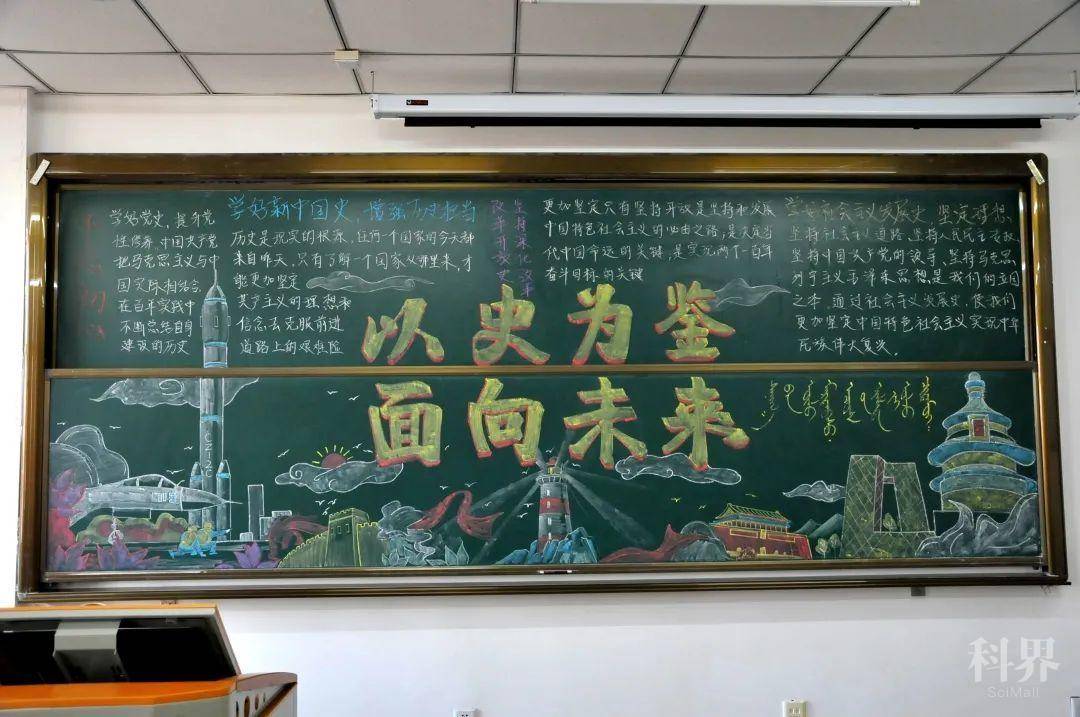 学好党史，提升党
性修养，中国共产党
把马克思主义与中
国实际相结合
在百年实践中
不断总结自身
建设的历史
学好新中国史，增强历史担当
历史是现实的根源，任何一个国家的今天都
来自昨天，只有了解一个国家从哪里来，才
能更加坚定
共产主义的理想和
信念去克服前进
道路上的艰难险
坚持深化改革
改革开放史
更加坚定只有坚持开放是坚持和发展
中国特色社会主义的必由之路，是决定当
代中国命运的关键，是实现两个一百年
奋斗目标的关键
学好社会主义发展史 坚定理想
坚持社会主义道路、坚持人民民主专政、
坚持中国共产党的领导、坚持马克思
列宁主义毛泽东思想是我们的立国
之本，通过社会主义发展史，使我们
更加坚定中国特色社会主义实现中华
民族伟大复兴。
以史为鉴
面向未来
CZ-2
科界
SciMall